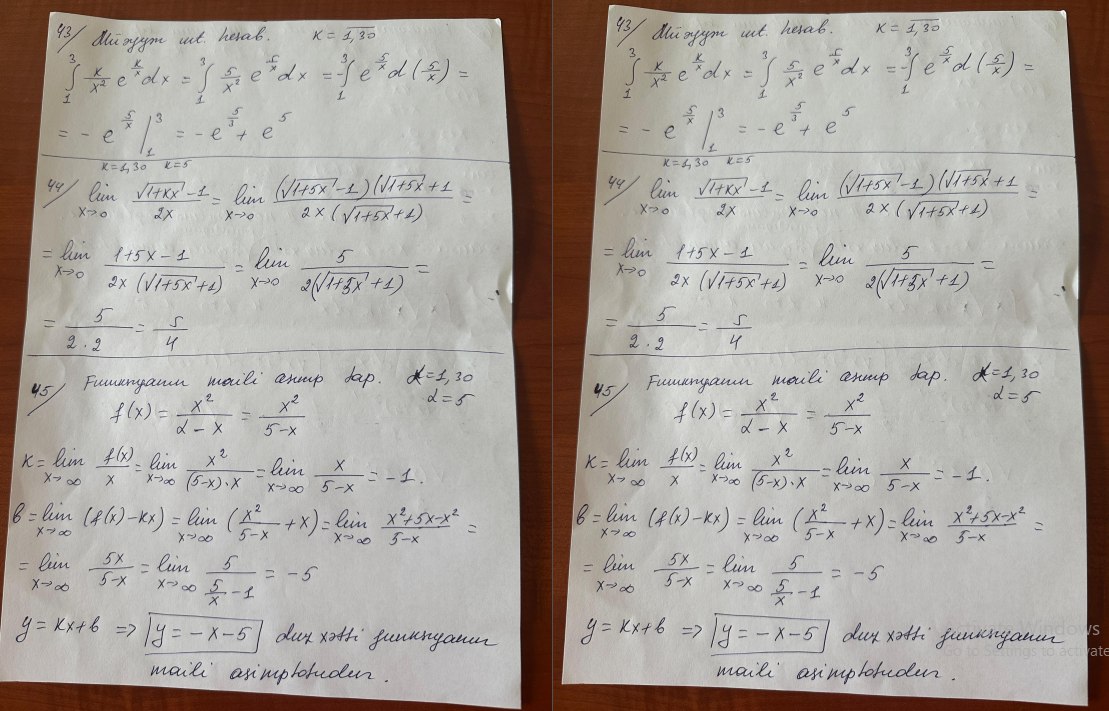 43/ Müəyyən int. hesab. K = 1,30
∫₁³ K/x² e^(K/x) dx = ∫₁³ 5/x² e^(5/x) dx = -∫₁³ e^(5/x) d(5/x) =
= - e^(5/x) |₁³ = - e^(5/3) + e^5
K=1,30 K=5
44/ lim x→0 (√(1+Kx) - 1)/(2x) = lim x→0 ((√(1+5x) - 1)(√(1+5x) + 1)/(2x(√(1+5x) + 1)) =
= lim x→0 (1+5x-1)/(2x(√(1+5x)+1)) = lim x→0 5/(2(√(1+5x)+1)) =
= 5/(2·2) = 5/4
45/ Funksiyanın maili asimp tap. α=1,30
α=5
f(x) = x²/(α-x) = x²/(5-x)
K = lim x→∞ f(x)/x = lim x→∞ x²/((5-x)·x) = lim x→∞ x/(5-x) = -1.
b = lim x→∞ (f(x)-Kx) = lim x→∞ (x²/(5-x) + x) = lim x→∞ (x²+5x-x²)/(5-x) =
= lim x→∞ 5x/(5-x) = lim x→∞ 5/(5/x - 1) = -5
y = Kx+b => y = -x-5 düz xətti funksiyanın
maili asimptotudur.
43/ Müəyyən int. hesab. K = 1,30
∫₁³ K/x² e^(K/x) dx = ∫₁³ 5/x² e^(5/x) dx = -∫₁³ e^(5/x) d(5/x) =
= - e^(5/x) |₁³ = - e^(5/3) + e^5
K=1,30 K=5
44/ lim x→0 (√(1+Kx) - 1)/(2x) = lim x→0 ((√(1+5x) - 1)(√(1+5x) + 1)/(2x(√(1+5x) + 1)) =
= lim x→0 (1+5x-1)/(2x(√(1+5x)+1)) = lim x→0 5/(2(√(1+5x)+1)) =
= 5/(2·2) = 5/4
45/ Funksiyanın maili asimp tap. α=1,30
α=5
f(x) = x²/(α-x) = x²/(5-x)
K = lim x→∞ f(x)/x = lim x→∞ x²/((5-x)·x) = lim x→∞ x/(5-x) = -1.
b = lim x→∞ (f(x)-Kx) = lim x→∞ (x²/(5-x) + x) = lim x→∞ (x²+5x-x²)/(5-x) =
= lim x→∞ 5x/(5-x) = lim x→∞ 5/(5/x - 1) = -5
y = Kx+b => y = -x-5 düz xətti funksiyanın
maili asimptotudur.
Windows
Go to Settings to activate